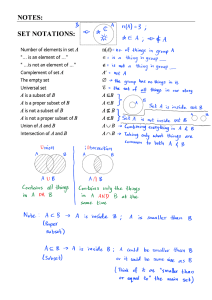 NOTES:
SET NOTATIONS:
B
A
n(A) = 3 ;
⇒ * ∈ A
* ∈ A ; ∉ A
Number of elements in set A n(A) - no. of things in group A
"... is an element of ..." ∈ - is a thing in group
"... is not an element of ..." ∉ - is not a thing in group
Complement of set A A' - not A
The empty set ∅ → the group has no things in it
Universal set ℰ - the set of all things in our story
A is a subset of B A ⊆ B
A is a proper subset of B A ⊂ B
Set A is inside set B
A is not a subset of B A ⊈ B
A is not a proper subset of B A ⊄ B
Set A is not inside set B
Union of A and B A ∪ B → Combining everything in A & B
Intersection of A and B A ∩ B → Taking only what things are
common to both A & B
Union
Intersection
A B
A B
A ∪ B
A ∩ B
Contains all things
in A OR B
Contains only the things
in A AND B at the
same time
Note: A ⊂ B → A is inside B ; A is smaller than B
(Proper
subset)
A ⊆ B → A is inside B ; A could be smaller than B
(Subset) or it could be same size as B
(Think of A as "smaller than
or equal to" the main set)